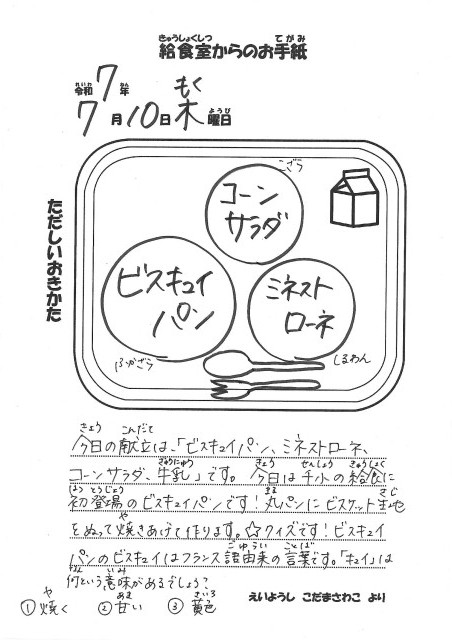 きゅうしょくしつ てがみ
給食室からのお手紙
れいわ ねん もく
令和7年
7月10日木曜日
ようび
ただしいおきかた
こざら
コーン
サラダ
ビスキュイ
パン
ミネスト
ローネ
ふかざら
しるわん
きょう こんだて
今日の献立は、「ビスキュイパン、ミネストローネ、
ぎゅうにゅう きょう せんしょう きゅうしょく
コーンサラダ、牛乳」です。今日は千小の給食に
はつとうじょう まる きじ
初登場のビスキュイパンです!丸パンにビスケット生地
や
をぬって焼きあげて作ります。☆クイズです!ビスキュイ
ごゆらい ことば
パンのビスキュイはフランス語由来の言葉です。「キュイ」は
なん いみ
何という意味があるでしょう?
や あま きいろ
①焼く ②甘い ③黄色
えいようし こだまさわこ より